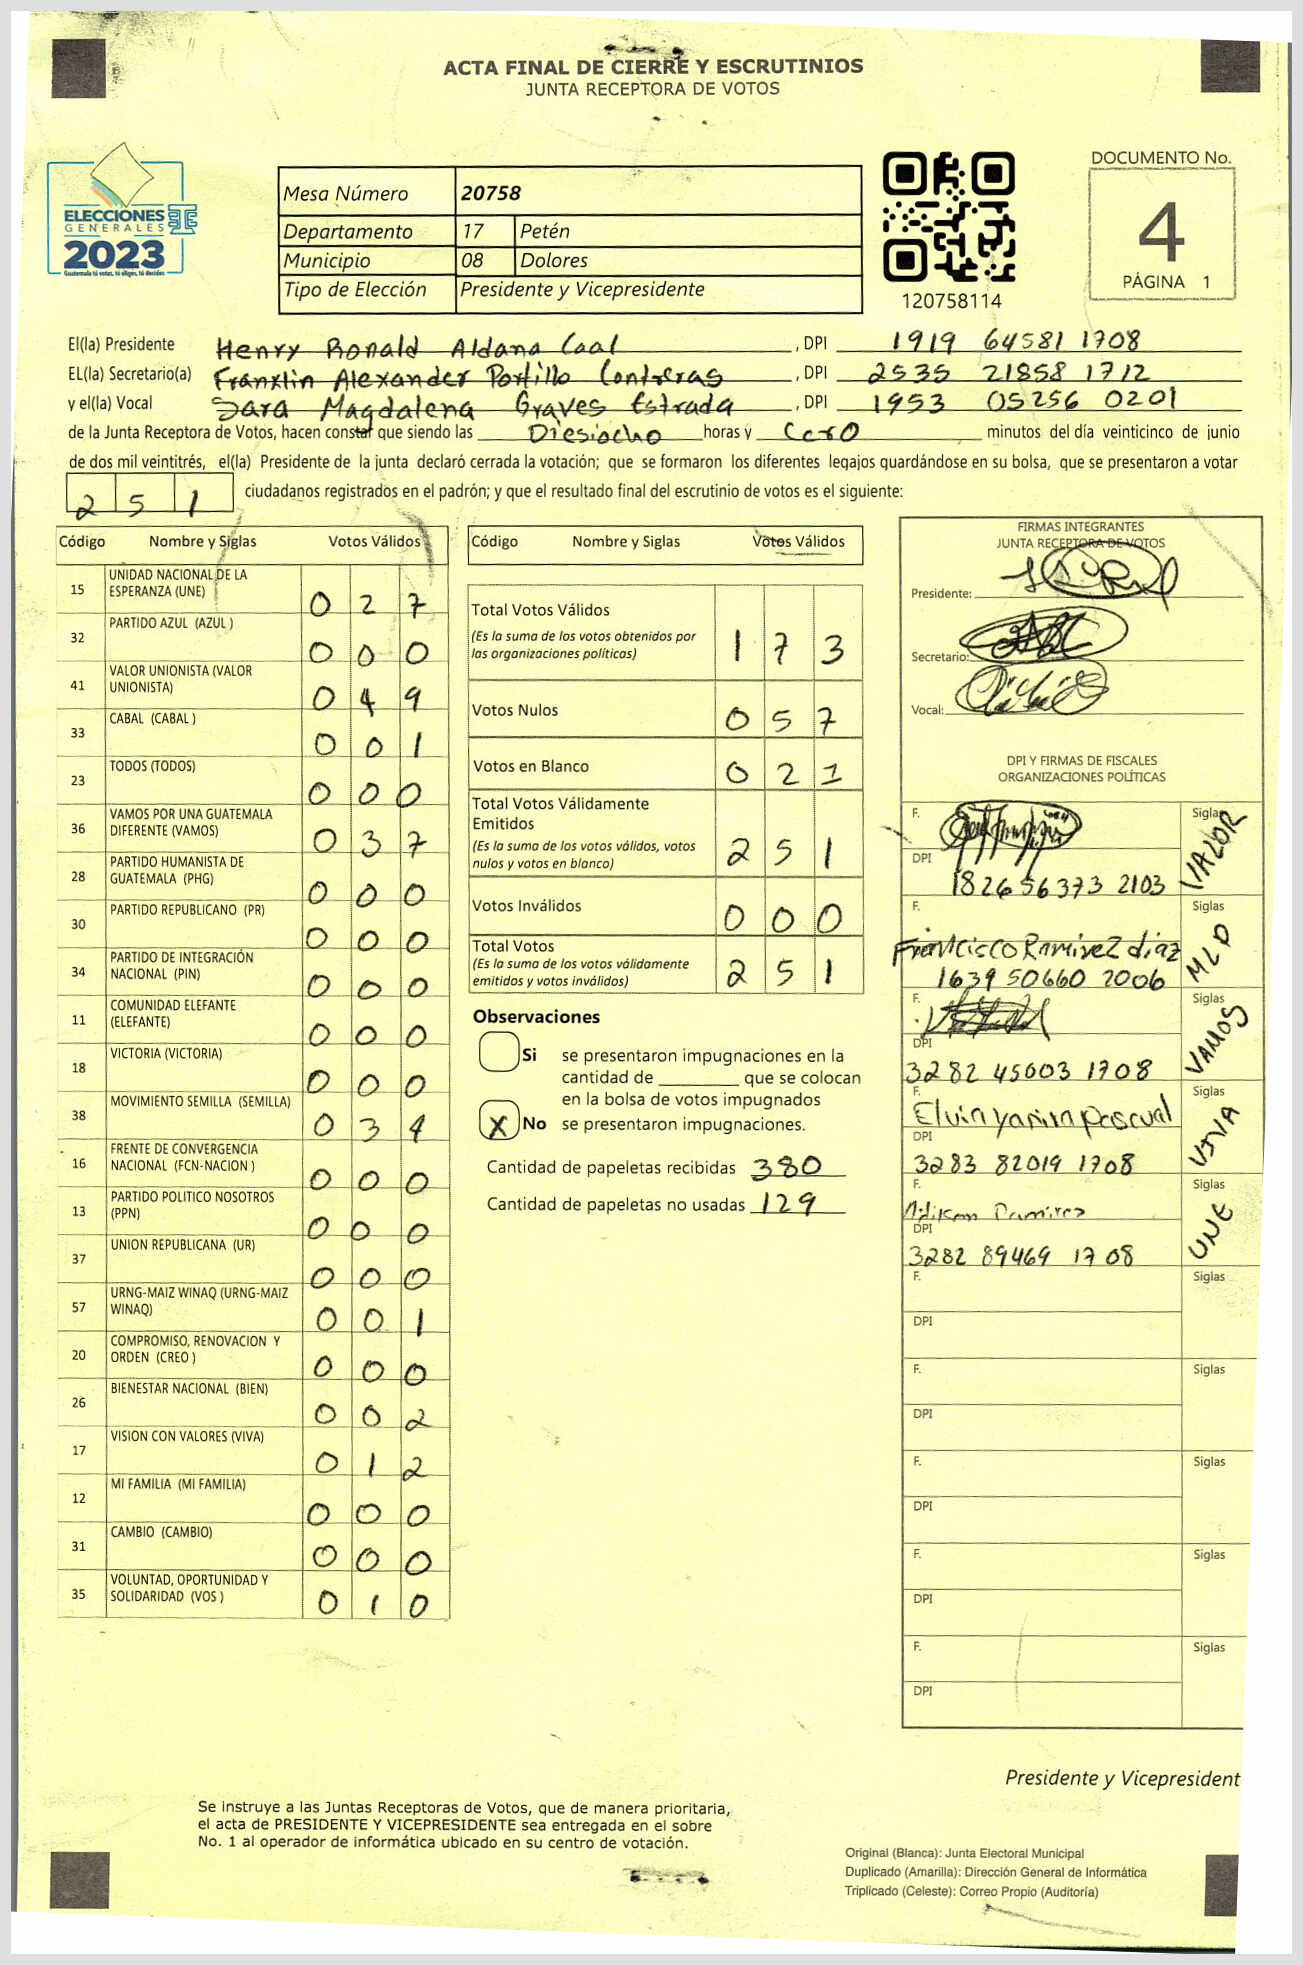 ACTA FINAL DE CIERRE Y ESCRUTINIOS
JUNTA RECEPTORA DE VOTOS
ELECCIONES
GENERALES
2023
Guatemala tú votas, tú eliges, tú decides
Mesa Número 20758
Departamento 17 Petén
Municipio 08 Dolores
Tipo de Elección Presidente y Vicepresidente
120758114
DOCUMENTO No.
4
PÁGINA 1
El(la) Presidente Henry Ronald Aldana Caal, DPI 1919 64581 1708
EL(la) Secretario(a) Franklin Alexander Portillo Contreras, DPI 2535 21858 1712
y el(la) Vocal Sara Magdalena Graves Estrada, DPI 1953 05256 0201
de la Junta Receptora de Votos, hacen constar que siendo las Diesiocho horas y Cero minutos del día veinticinco de junio
de dos mil veintitrés, el(la) Presidente de la junta declaró cerrada la votación; que se formaron los diferentes legajos guardándose en su bolsa, que se presentaron a votar
251 ciudadanos registrados en el padrón; y que el resultado final del escrutinio de votos es el siguiente:
Código Nombre y Siglas Votos Válidos
15 UNIDAD NACIONAL DE LA ESPERANZA (UNE) 0 2 7
32 PARTIDO AZUL (AZUL ) 0 0 0
41 VALOR UNIONISTA (VALOR UNIONISTA) 0 4 9
33 CABAL (CABAL ) 0 0 1
23 TODOS (TODOS) 0 0 0
36 VAMOS POR UNA GUATEMALA DIFERENTE (VAMOS) 0 3 7
28 PARTIDO HUMANISTA DE GUATEMALA (PHG) 0 0 0
30 PARTIDO REPUBLICANO (PR) 0 0 0
34 PARTIDO DE INTEGRACIÓN NACIONAL (PIN) 0 0 0
11 COMUNIDAD ELEFANTE (ELEFANTE) 0 0 0
18 VICTORIA (VICTORIA) 0 0 0
38 MOVIMIENTO SEMILLA (SEMILLA) 0 3 4
16 FRENTE DE CONVERGENCIA NACIONAL (FCN-NACION ) 0 0 0
13 PARTIDO POLITICO NOSOTROS (PPN) 0 0 0
37 UNION REPUBLICANA (UR) 0 0 0
57 URNG-MAIZ WINAQ (URNG-MAIZ WINAQ) 0 0 1
20 COMPROMISO, RENOVACION Y ORDEN (CREO ) 0 0 0
26 BIENESTAR NACIONAL (BIEN) 0 0 2
17 VISION CON VALORES (VIVA) 0 1 2
12 MI FAMILIA (MI FAMILIA) 0 0 0
31 CAMBIO (CAMBIO) 0 0 0
35 VOLUNTAD, OPORTUNIDAD Y SOLIDARIDAD (VOS ) 0 1 0
Código Nombre y Siglas Votos Válidos
Total Votos Válidos 1 7 3
(Es la suma de los votos obtenidos por
las organizaciones políticas)
Votos Nulos 0 5 7
Votos en Blanco 0 2 1
Total Votos Válidamente
Emitidos 2 5 1
(Es la suma de los votos válidos, votos
nulos y votos en blanco)
Votos Inválidos 0 0 0
Total Votos 2 5 1
(Es la suma de los votos válidamente
emitidos y votos inválidos)
Observaciones
Si se presentaron impugnaciones en la
cantidad de ________ que se colocan
en la bolsa de votos impugnados
X No se presentaron impugnaciones.
Cantidad de papeletas recibidas 380
Cantidad de papeletas no usadas 129
FIRMAS INTEGRANTES
JUNTA RECEPTORA DE VOTOS
Presidente:
Secretario:
Vocal:
DPI Y FIRMAS DE FISCALES
ORGANIZACIONES POLÍTICAS
F. Siglas VALOR
DPI 1826 56373 2103
F. Francisco Ramirez diaz Siglas MLP
1639 50660 2006
F. Siglas VAMOS
DPI 3282 45003 1708
F. Elvin yanira pascual Siglas VIVA
DPI 3283 82019 1708
F. Ramirez Siglas UNE
DPI 3282 89469 1708
F. Siglas
DPI
F. Siglas
DPI
F. Siglas
DPI
F. Siglas
DPI
F. Siglas
DPI
Presidente y Vicepresident
Se instruye a las Juntas Receptoras de Votos, que de manera prioritaria,
el acta de PRESIDENTE Y VICEPRESIDENTE sea entregada en el sobre
No. 1 al operador de informática ubicado en su centro de votación.
Original (Blanca): Junta Electoral Municipal
Duplicado (Amarilla): Dirección General de Informática
Triplicado (Celeste): Correo Propio (Auditoría)